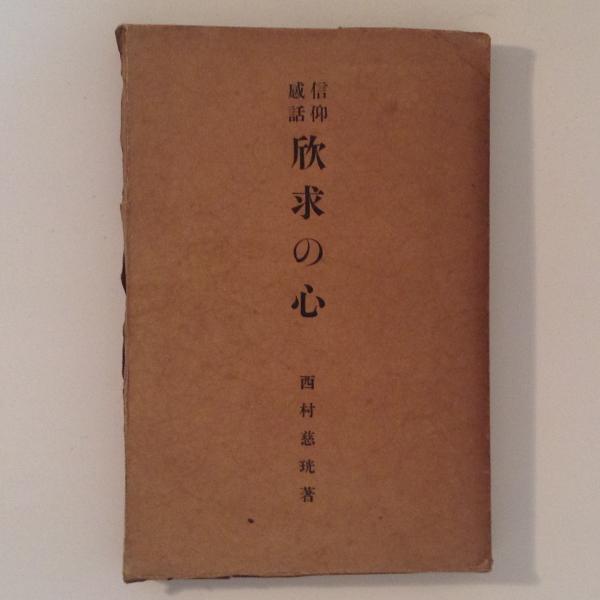 信仰
感話
欣求の心
西村慈珖著